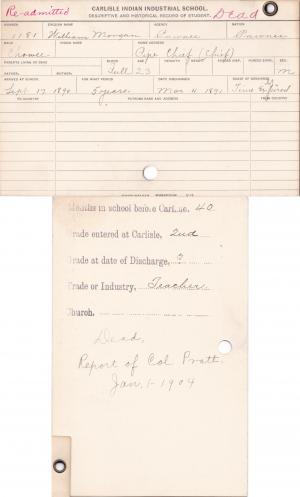 Re-admitted
CARLISLE INDIAN INDUSTRIAL SCHOOL.
DESCRIPTIVE AND HISTORICAL RECORD OF STUDENT.
Dead
NUMBER ENGLISH NAME AGENCY NATION
1181 William Morgan Pawnee Pawnee
BAND INDIAN NAME HOME ADDRESS
Chowee Pipe Chief (Chief)
PARENTS LIVING OR DEAD BLOOD AGE HEIGHT WEIGHT FORCED INSP. FORCED EXPR. SEX
FATHER MOTHER Full 23 M
ARRIVED AT SCHOOL FOR WHAT PERIOD DATE DISCHARGED CAUSE OF DISCHARGE
Sept. 17 1890 5 years Mar 4 1891 Time Expired
TO COUNTRY PATRONS NAME AND ADDRESS FROM COUNTRY
Months in school before Carlisle, 40
Grade entered at Carlisle, 2nd
Grade at date of Discharge, ?
Trade or Industry, Teacher
Church,
Dead,
Report of Col Pratt.
Jan. 1-1904